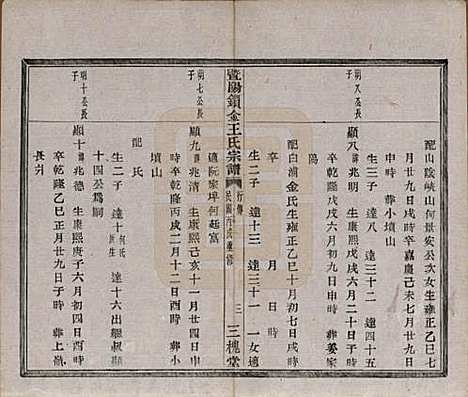 配山陰峽山何景安公次女生雍正乙巳七
月廿九日戌時 卒嘉慶己未七月廿九日
申時 葬小墳山
生三子 達八 達三十二 達四十五
朝八公長子
顯八 諱兆明 生康熙戊戌六月二十日戌
時 卒乾隆戊戌六月初九日申時 葬姜家
陽
配白浦金氏生雍正乙巳十月初七日戌時
卒 月 日 時
生二子 達十三 達三十一 一女適
暨陽鎖金王氏宗譜 行傳 民國丙辰重修 三 三槐堂
適阮家埠何起富
朝七公長子
顯九 諱兆清 生康熙己亥十一月廿四日酉
時卒乾隆丙戌二月十二日酉時 葬
墳山
配 氏
生二子 達十 何氏所生 達十六出繼叔顯
十四公爲嗣
朝十公長子
顯十 諱兆德 生康熙庚子六月初四日酉時
卒乾隆乙巳正月廿九日子時 葬上嶺
長塢